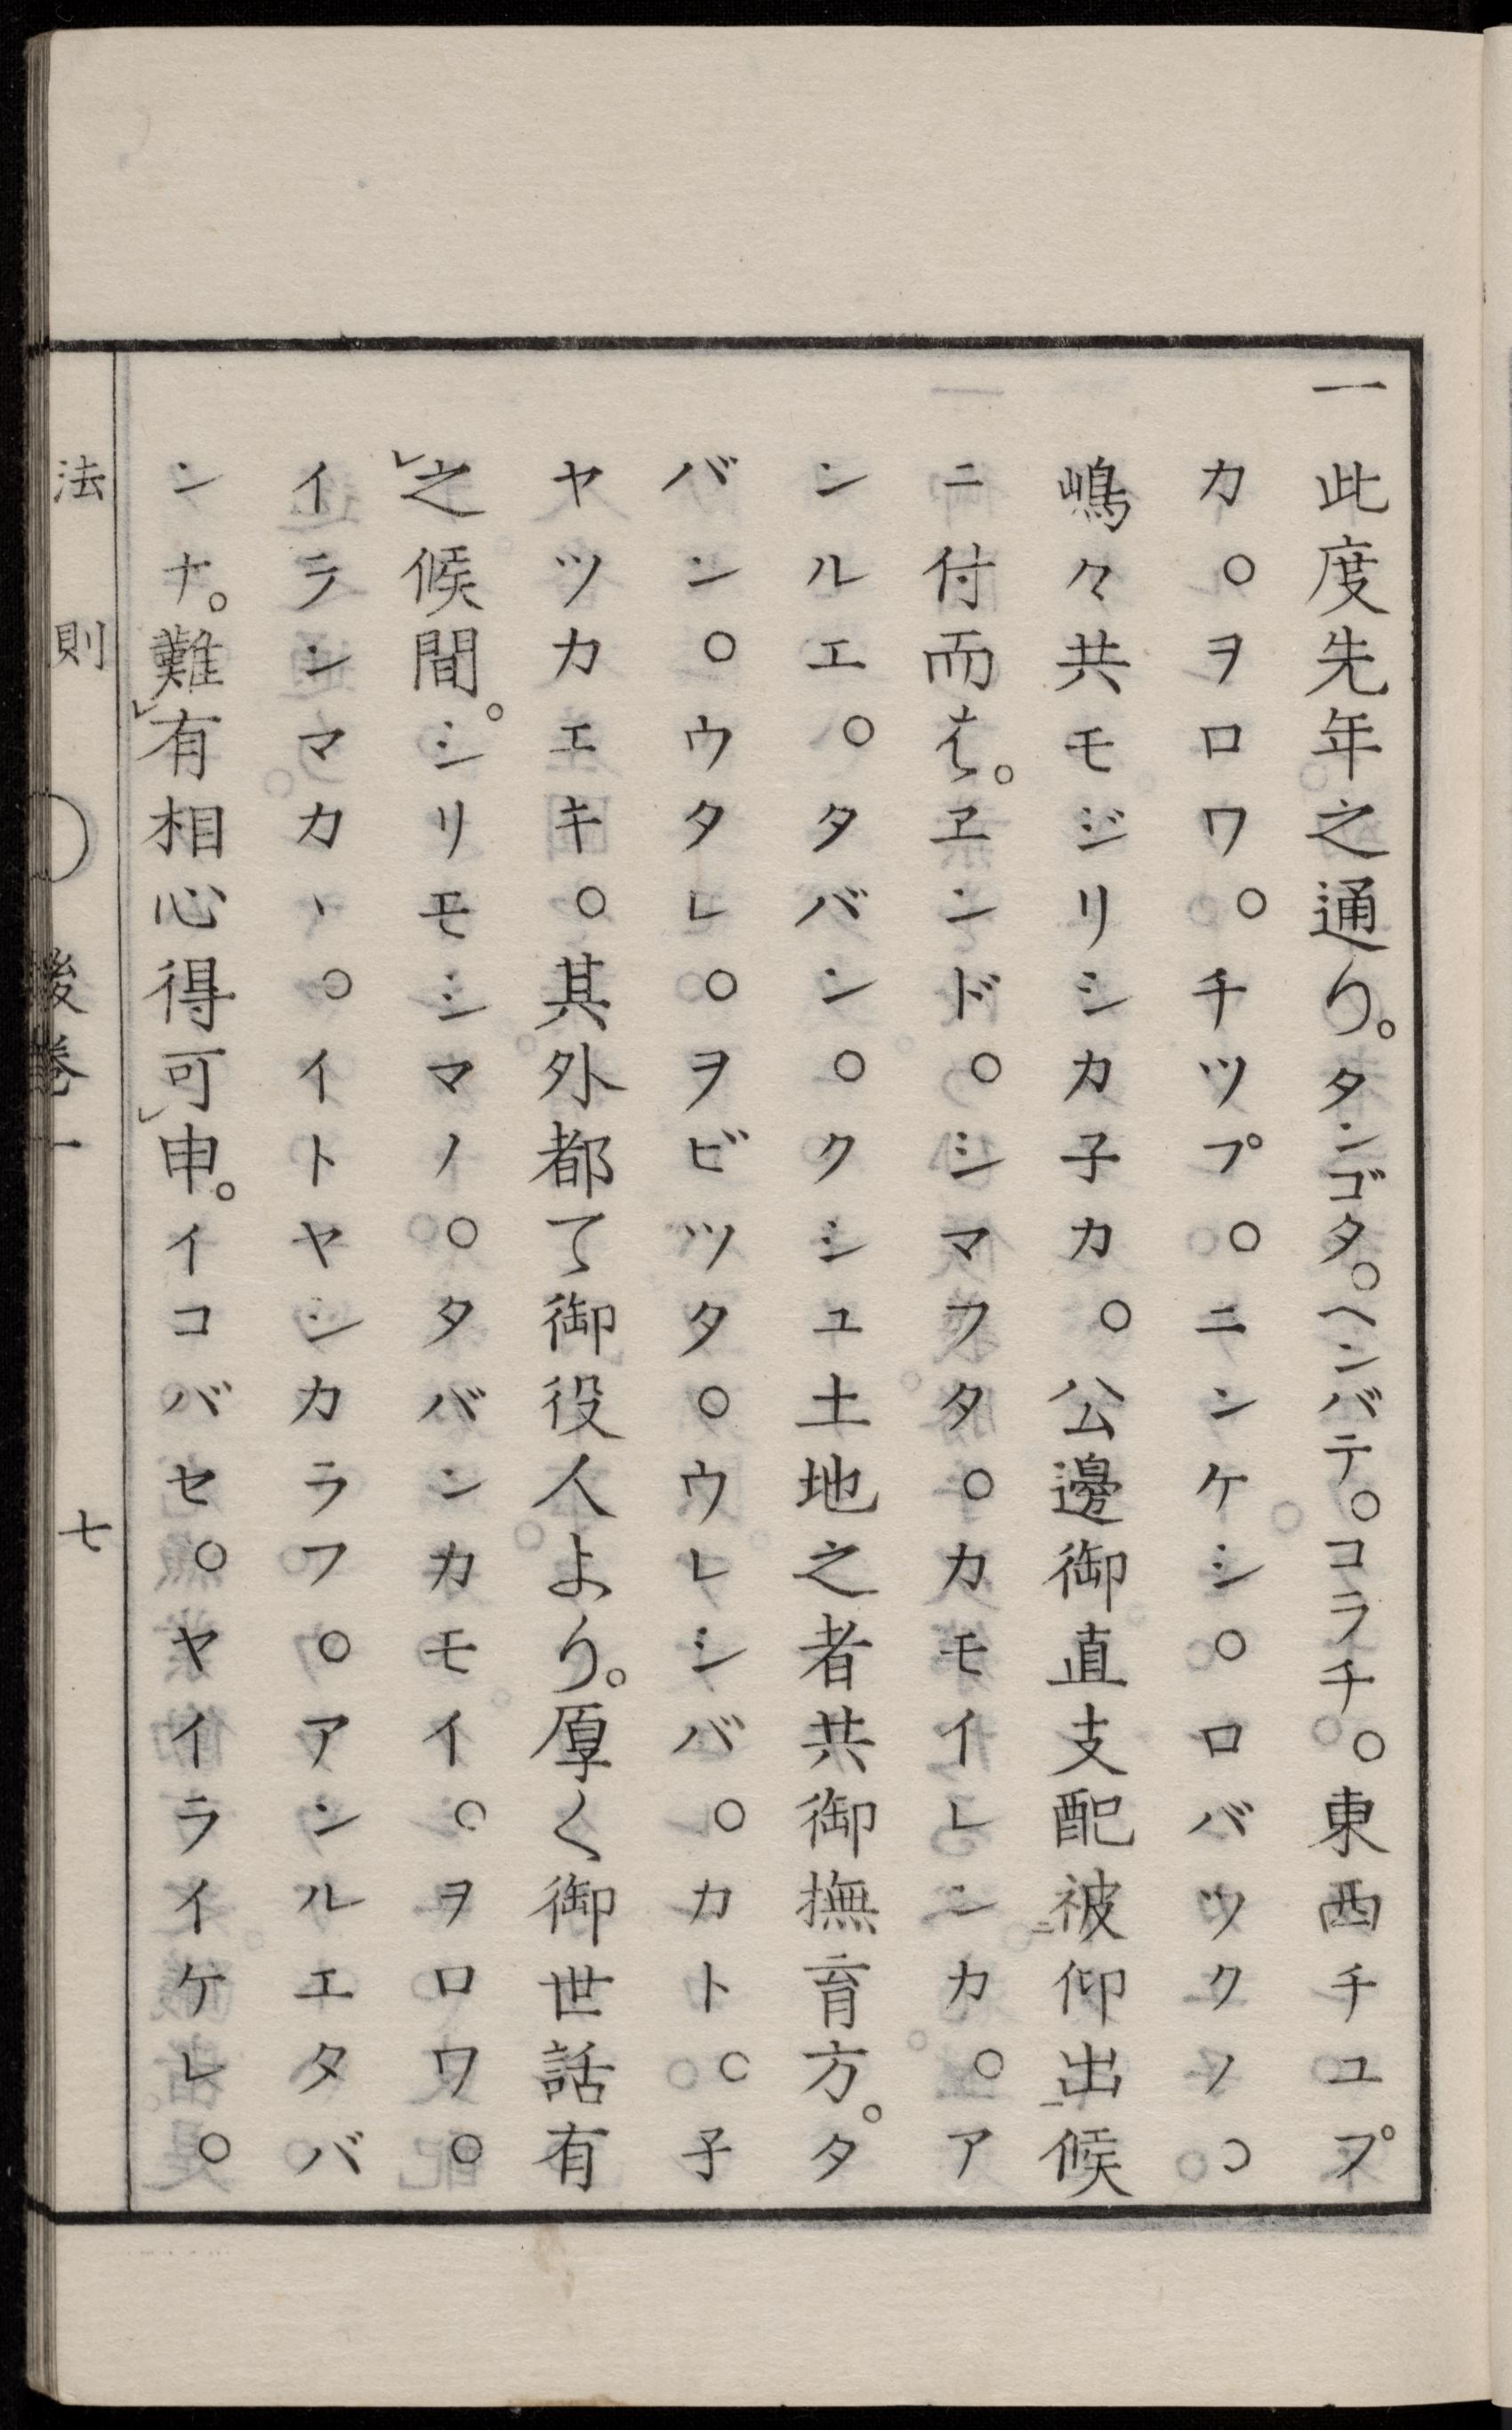 一此度先年之通り。タンゴタ。ヘンバテ。コラチ。東西チユプ
カ。ヲロワ。チツプ。ニンケシ。ロバツクノ。
嶋々共モジリシカ子カ。公邊御直支配被ニ仰出一候
ニ付而は。ヱンド。シマフタ。カモイレンカ。ア
ンルエ。タバン。クシユ土地之者共御撫育方。タ
バン。ウタレ。ヲビツタ。ウレシバ。カト。子
ヤツカエキ。其外都て御役人より。厚く御世話有
レ之候間。シリモシマノ。タバンカモイ。ヲロワ。
イランマカヽ。イトヤシカラフ。アンルエタバ
ンナ。難レ有相心得可レ申。イコバセ。ヤイライケレ。
法則 ○ 後巻一 七